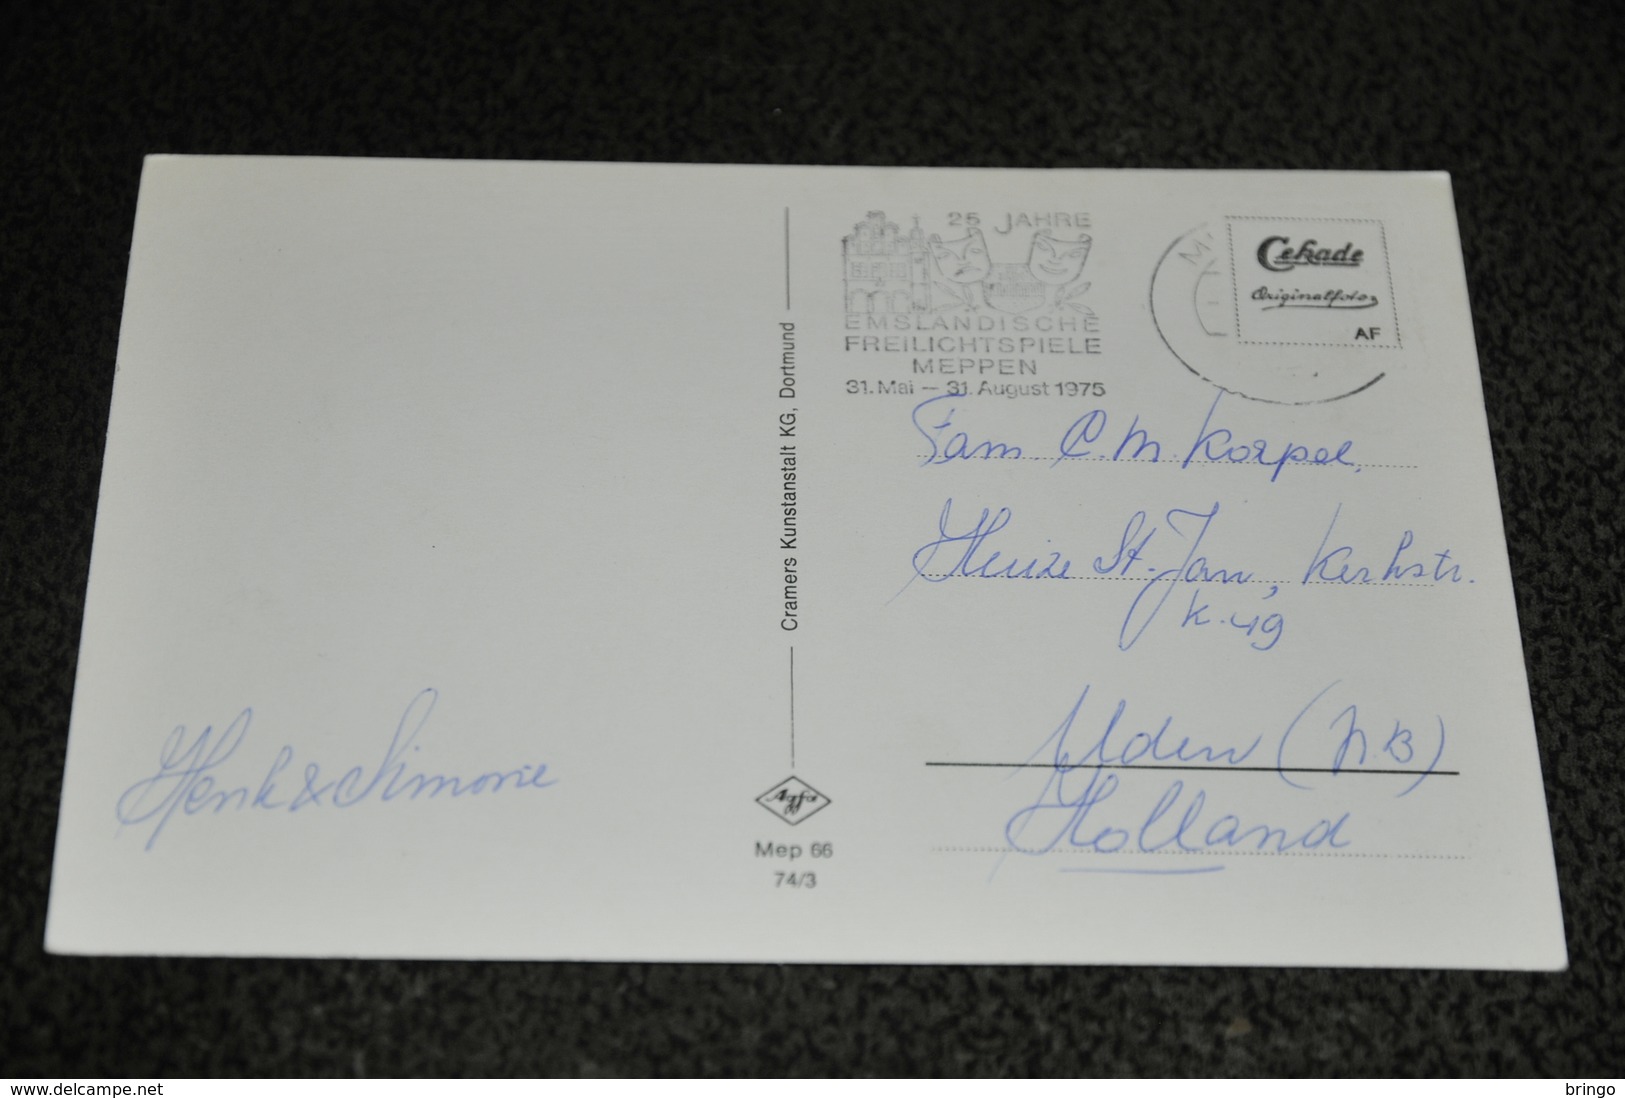 25 JAHRE
EMSLÄNDISCHE
FREILICHTSPIELE
MEPPEN
31. Mai – 31. August 1975
M
Cekade
Originalfoto
AF
Cramers Kunstanstalt KG, Dortmund
Fam. C. M. Korpel,
Huize St. Jan, Kerkstr.
K. 49
Uden (N.B)
Holland
Henk & Simonie
Agfa
Mep 66
74/3
www.delcampe.net
bringo